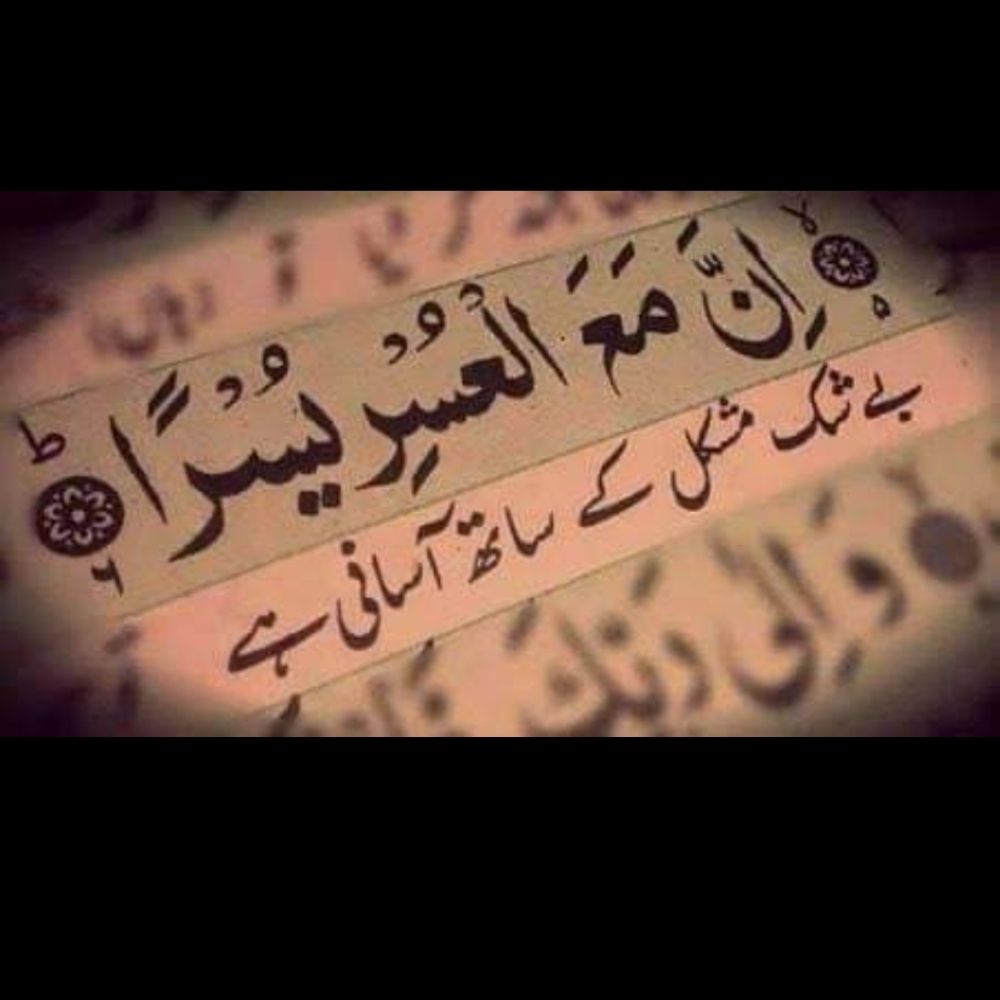 اِنَّ مَعَ الْعُسْرِ يُسْرًا ط ۶
بے شک مشکل کے ساتھ آسانی ہے
وَاِلٰى رَبِّكَ